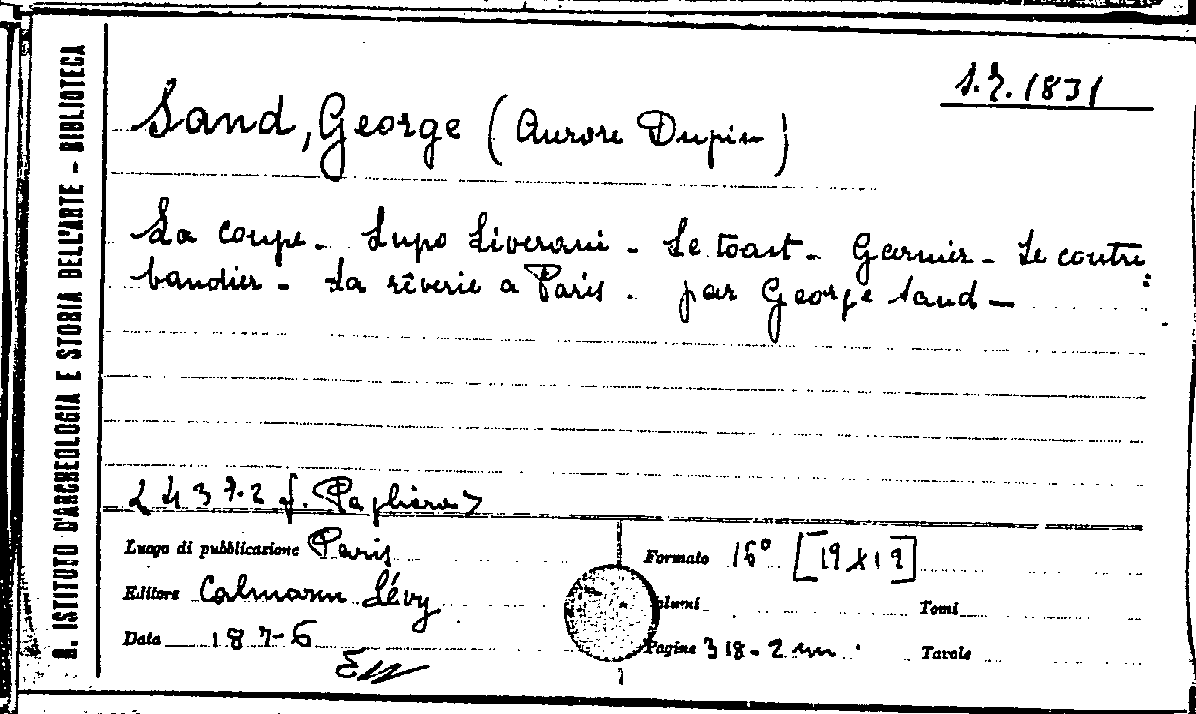 R. ISTITUTO D'ARCHEOLOGIA E STORIA DELL'ARTE - BIBLIOTECA
Sand, George (Aurore Dupin)
La coupe - Lupo Liverani - Le toast - Garnier - Le contre
bandier - La rêverie a Paris. par George Sand -
Luogo di pubblicazione Paris
Formato 16°
Editore Calmann Lévy
Volumi
Tomi
Data 1876
Pagine 318-2
Tavole